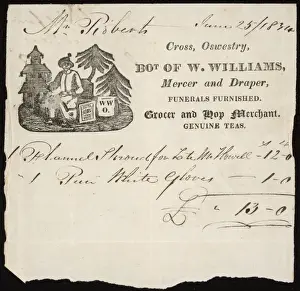 Mr Roberts June 25/1834
Cross, Oswestry,
BOT. OF W. WILLIAMS,
Mercer and Draper,
FUNERALS FURNISHED.
Grocer and Hop Merchant.
GENUINE TEAS.
WW
O.
1 Flannel Shroud for Late Mr Howell - 12-0
1 Pair White Gloves - 1-0
£ " 13-0